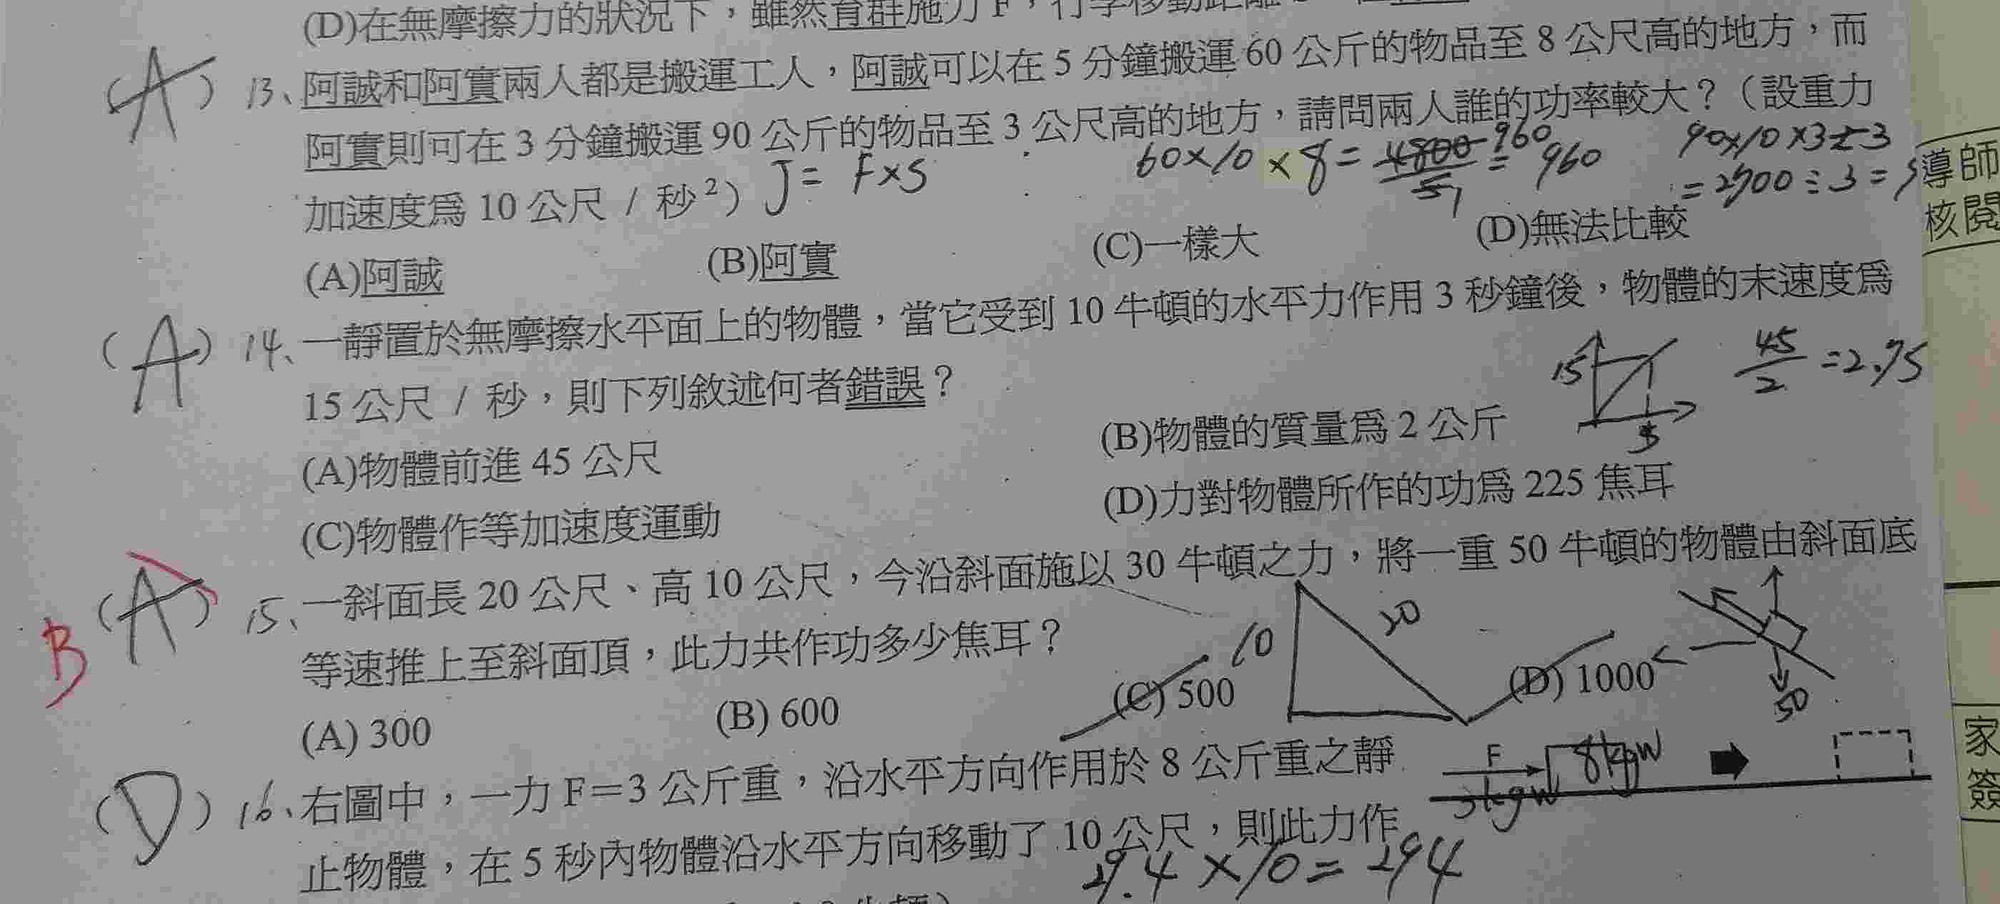 (D)在無摩擦力的狀況下，雖然育群施力 F，行李移動距離
(A) 13、阿誠和阿實兩人都是搬運工人，阿誠可以在 5 分鐘搬運 60 公斤的物品至 8 公尺高的地方，而
阿實則可在 3 分鐘搬運 90 公斤的物品至 3 公尺高的地方，請問兩人誰的功率較大？（設重力
加速度為 10 公尺 / 秒²）
J = F×S
60×10×8= 4800/5 = 960
960
90×10×3÷3
=2700÷3=9
(A)阿誠 (B)阿實 (C)一樣大 (D)無法比較
(A) 14、一靜置於無摩擦水平面上的物體，當它受到 10 牛頓的水平力作用 3 秒鐘後，物體的末速度為
15 公尺 / 秒，則下列敘述何者錯誤？
15
45/2 =2.75
(A)物體前進 45 公尺 (B)物體的質量為 2 公斤
(C)物體作等加速度運動 (D)力對物體所作的功為 225 焦耳
B (A) 15、一斜面長 20 公尺、高 10 公尺，今沿斜面施以 30 牛頓之力，將一重 50 牛頓的物體由斜面底
等速推上至斜面頂，此力共作功多少焦耳？
10
20
50
(A) 300 (B) 600 (C) 500 (D) 1000
(D) 16、右圖中，一力 F＝3 公斤重，沿水平方向作用於 8 公斤重之靜
止物體，在 5 秒內物體沿水平方向移動了 10 公尺，則此力作
F
3kgw
8kgw
29.4×10=294
導師
核閱
家
簽